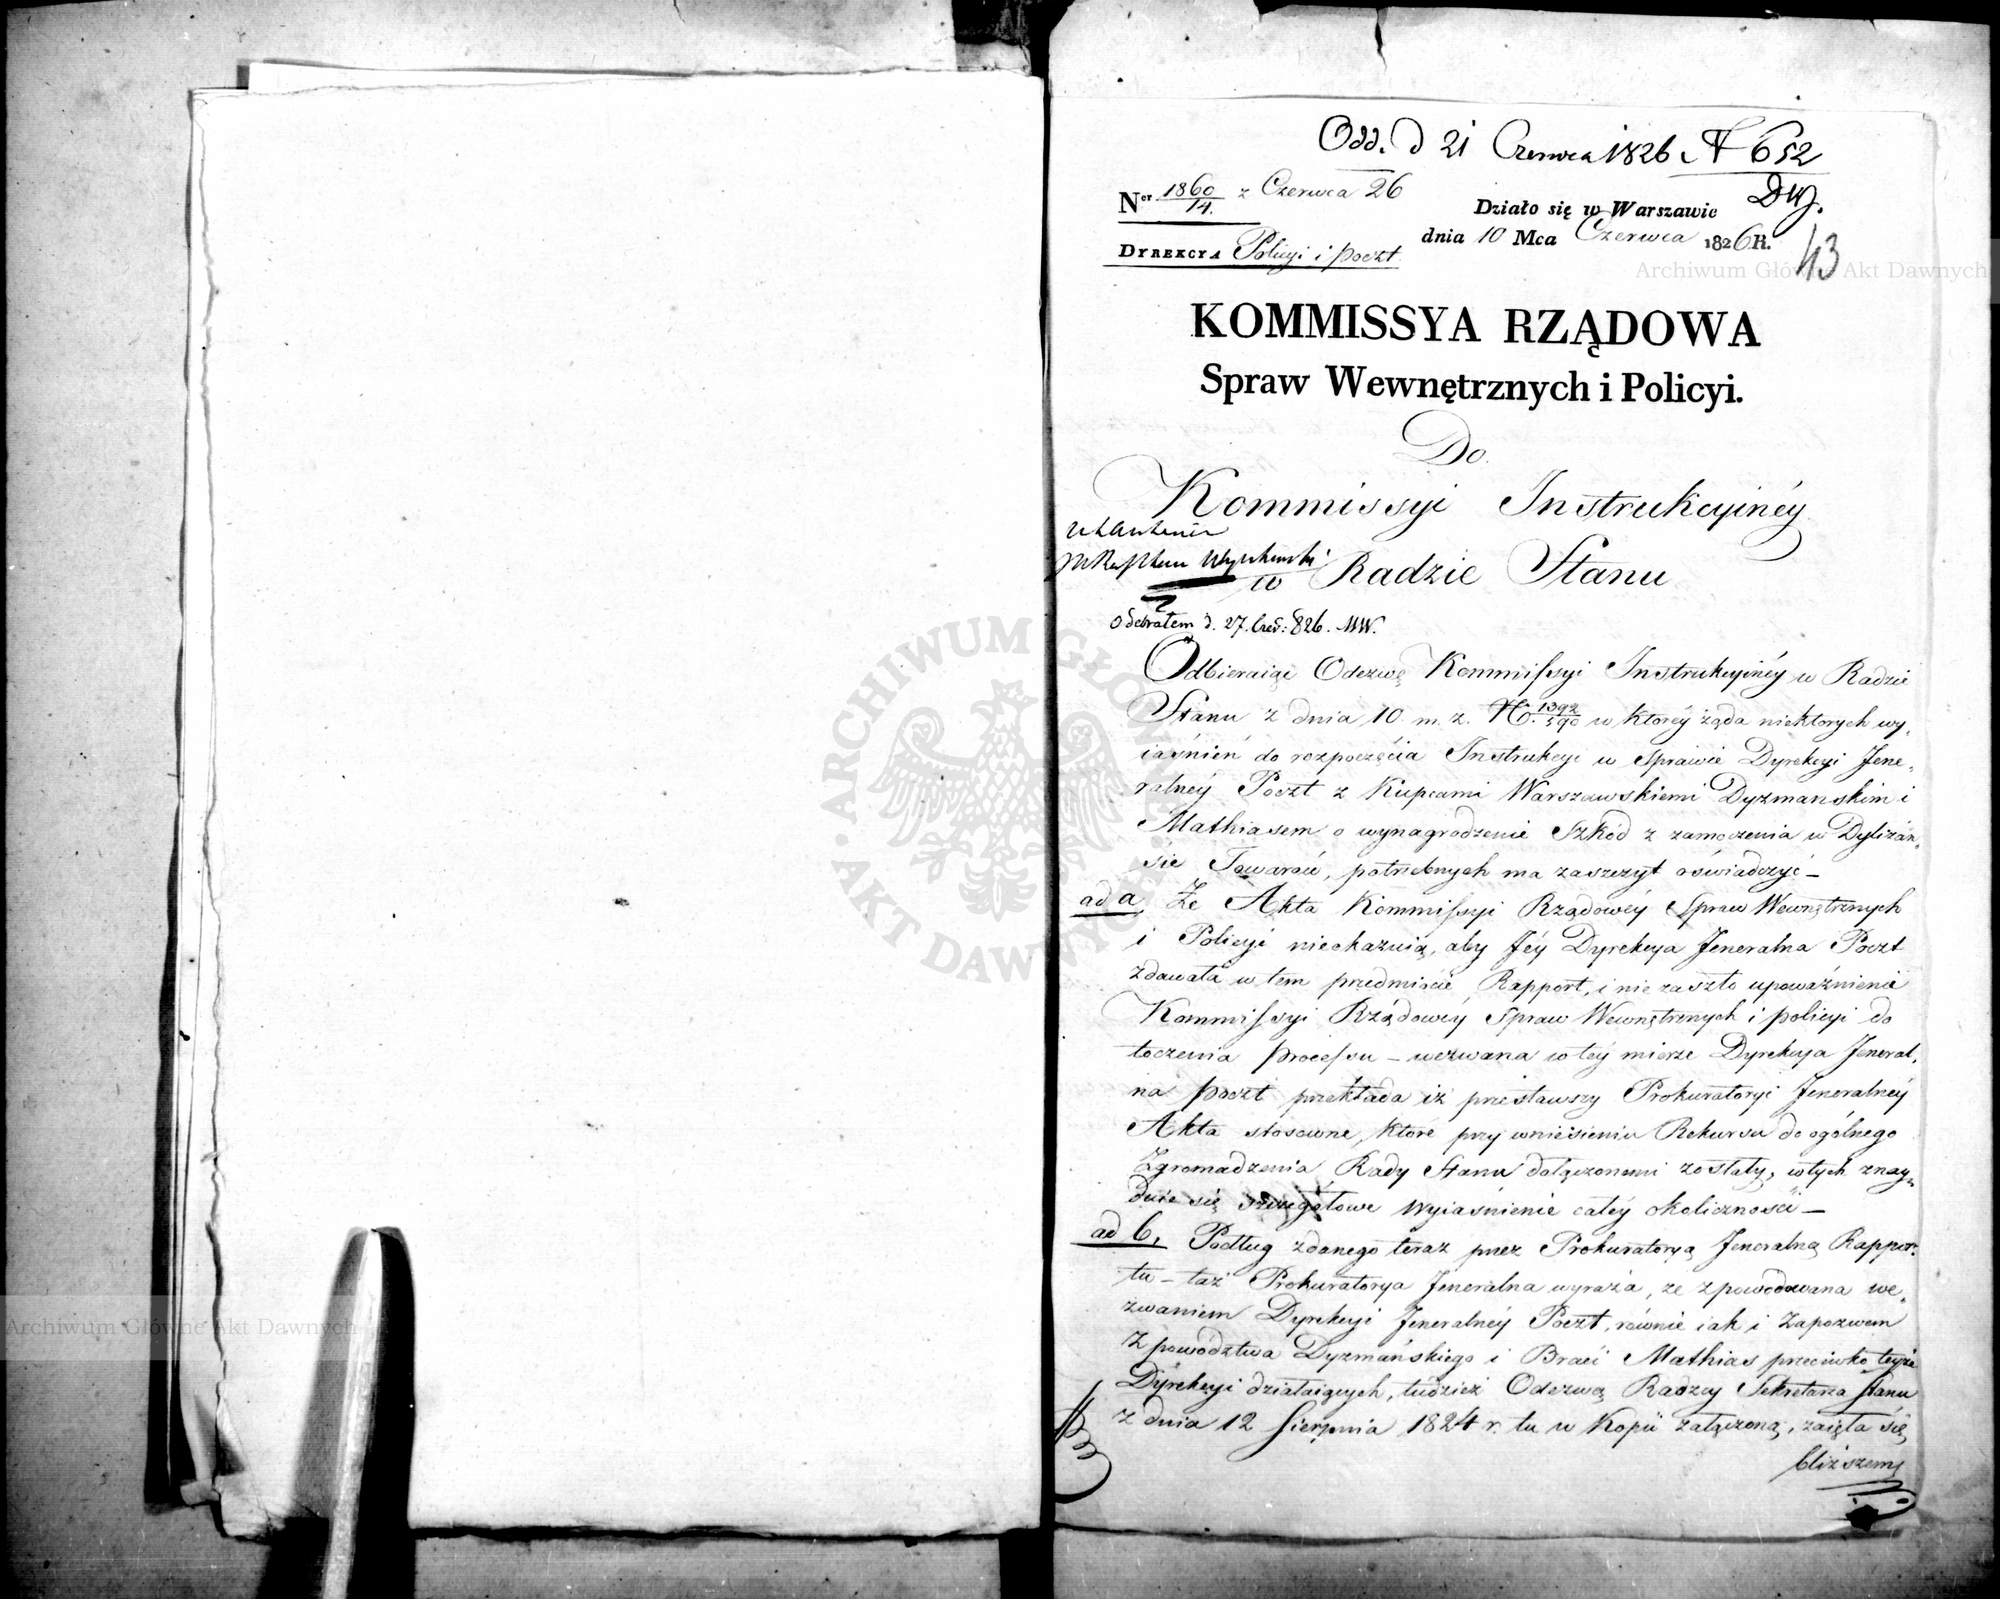 Odd. d 21 Czerwca 1826 N 652
Ner 1860/14. z Czerwca 26
Działo się w Warszawie
dnia 10 Mca Czerwca 1826 R.
43
DYREKCYA Policyi i poczt
KOMMISSYA RZĄDOWA
Spraw Wewnętrznych i Policyi.
Do
Kommissyi Instrukcyinéy
w Radzie Stanu
Odebrałem d. 27. Czer: 826. MW.
Odbieraiąc Odezwę Kommissyi Instrukcyinéy w Radzie
Stanu z dnia 10. m. z. N. 1392/590 w którey żąda niektorych wy,
iaśnień do rozpoczęcia Instrukcyi w Sprawie Dyrekcyi Jene,
ralnéy Poczt z Kupcami Warszawskiemi Dyzmanskim i
Mathiasem o wynagrodzenie Szkód z zamoczenia w Dyliżan,
sie Towarów, potrzebnych ma zaszczyt oświadczyć –
ad a, Że Akta Kommissyi Rządowéy Spraw Wewnętrznych
i Policyi nieokazuią, aby Jéy Dyrekcya Jeneralna Poczt
zdawała w tem przedmiocie Rapport, i nie zaszło upoważnienie
Kommissyi Rządowéy Spraw Wewnętrznych i policyi do
toczenia processu – wezwana w téy mierze Dyrekcya Jeneral,
na poczt przekłada iż przesławszy Prokuratoryi Jeneralnéy
Akta stosowne, które przy wniesieniu Rekursu do ogólnego
Zgromadzenia Rady Stanu dołączonemi zostały, w tych znay,
duie się szczegółowe Wyiaśnienie całéy okoliczności –
ad b, Podług zdanego teraz przez Prokuratoryą Jeneralną Rappor,
tu – taż Prokuratorya Jeneralna wyraża, że zpowodowana we,
zwaniem Dyrekcyi Jeneralnéy Poczt, równie iak i Zapozwem
Z powództwa Dyzmańskiego i Braci Mathias przeciwko teyże
Dyrekcyi działaiących, tudzież Odezwą Radzcy Sekretarza Stanu
z dnia 12 Sierpnia 1824 r. tu w Kopii załączoną, zaięła się
bliższem
Archiwum Główne Akt Dawnych
Archiwum Główne Akt Dawnych
ARCHIWUM GŁÓWNE AKT DAWNYCH